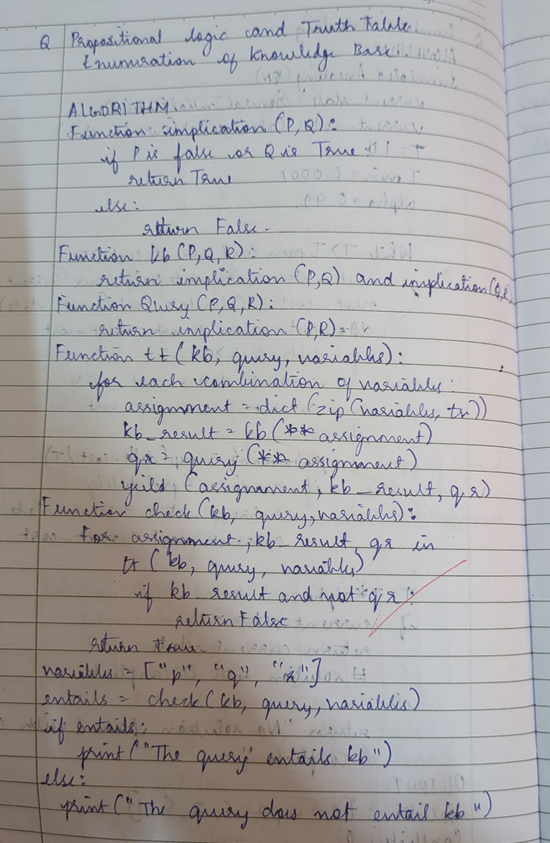 Q Propositional logic and Truth Table
Enumuration of Knowledge Base
ALGORITHM
Function implication (P,Q):
if P is false or Q is True :
return True
else:
return False.
Function kb (P,Q,R):
return implication (P,Q) and implication (Q,R
Function Query (P,Q,R):
return implication (P,R)
Function tt (kb, query, variables):
for each combination of variables:
assignment = dict (zip (variables, tr))
kb_result = kb (** assignment)
qr = query (** assignment)
yeild (assignment, kb_result, qr)
Function check (kb, query, variables):
For assignment, kb_result, qr in
tt (kb, query, variables)
if kb_result and not qr :
return False
return True
variables = ["p", "q", "r"]
entails = check (kb, query, variables)
if entails:
print ("The query entails kb")
else:
print (" The query does not entail kb ")